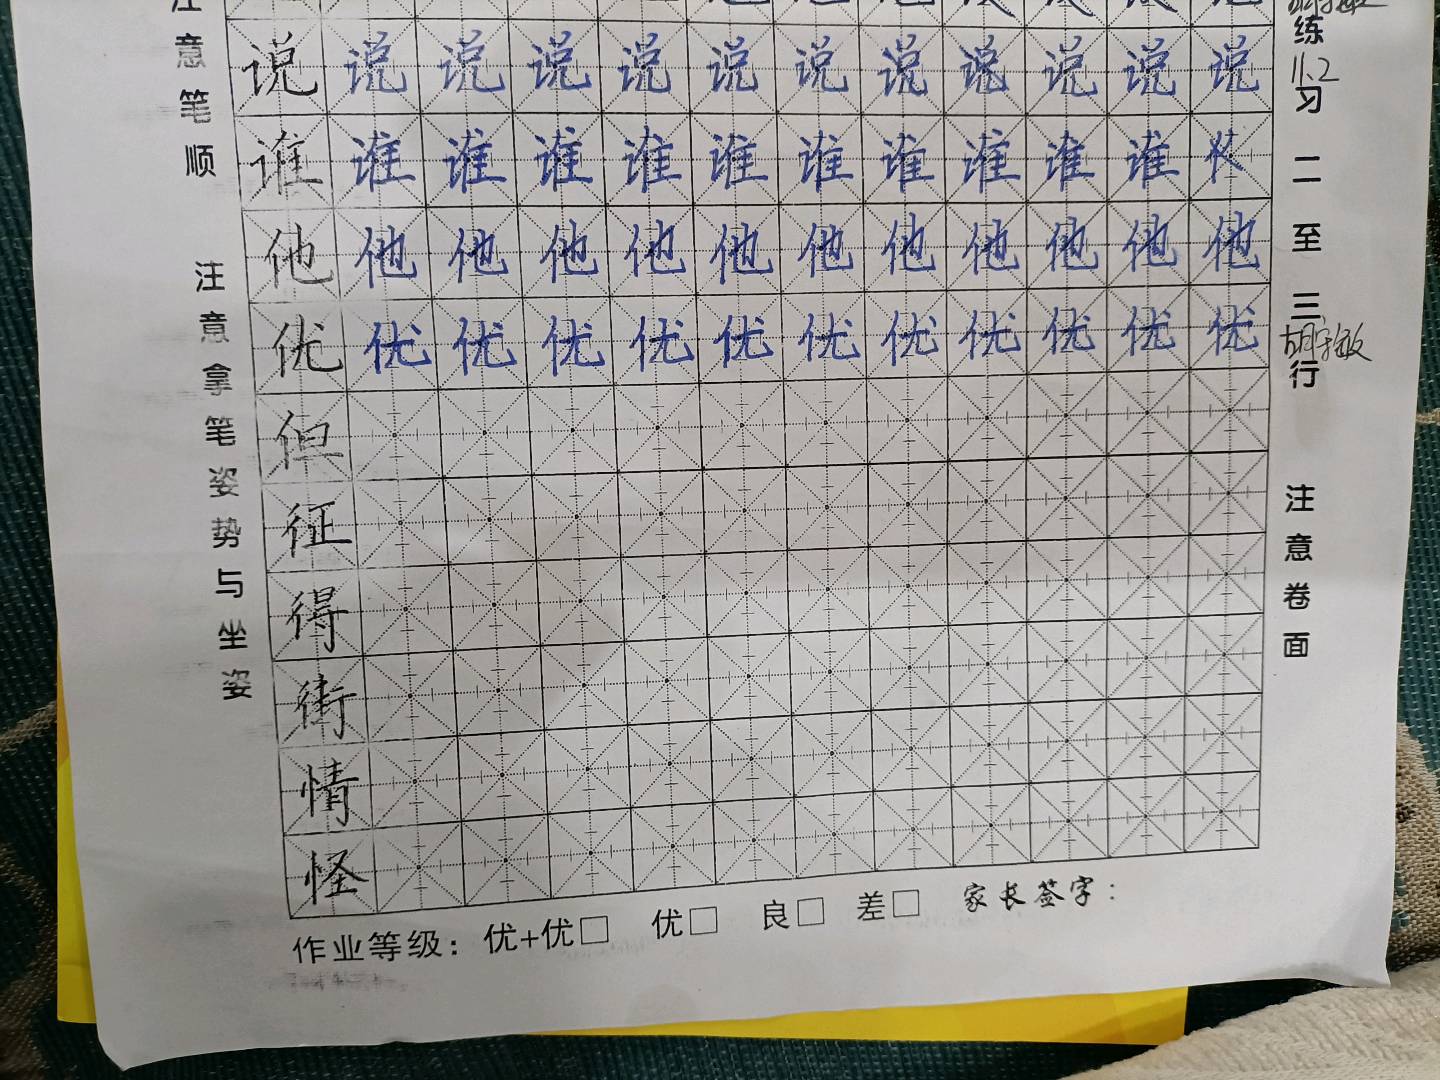 说说说说说说说说说说说说
谁谁谁谁谁谁谁谁谁谁谁
他他他他他他他他他他他他
优优优优优优优优优优优优
但
征
得
街
情
怪
作业等级：优+优□ 优□ 良□ 差□ 家长签字：
注意笔顺 注意拿笔姿势与坐姿
练习二至三行 注意卷面
11.2